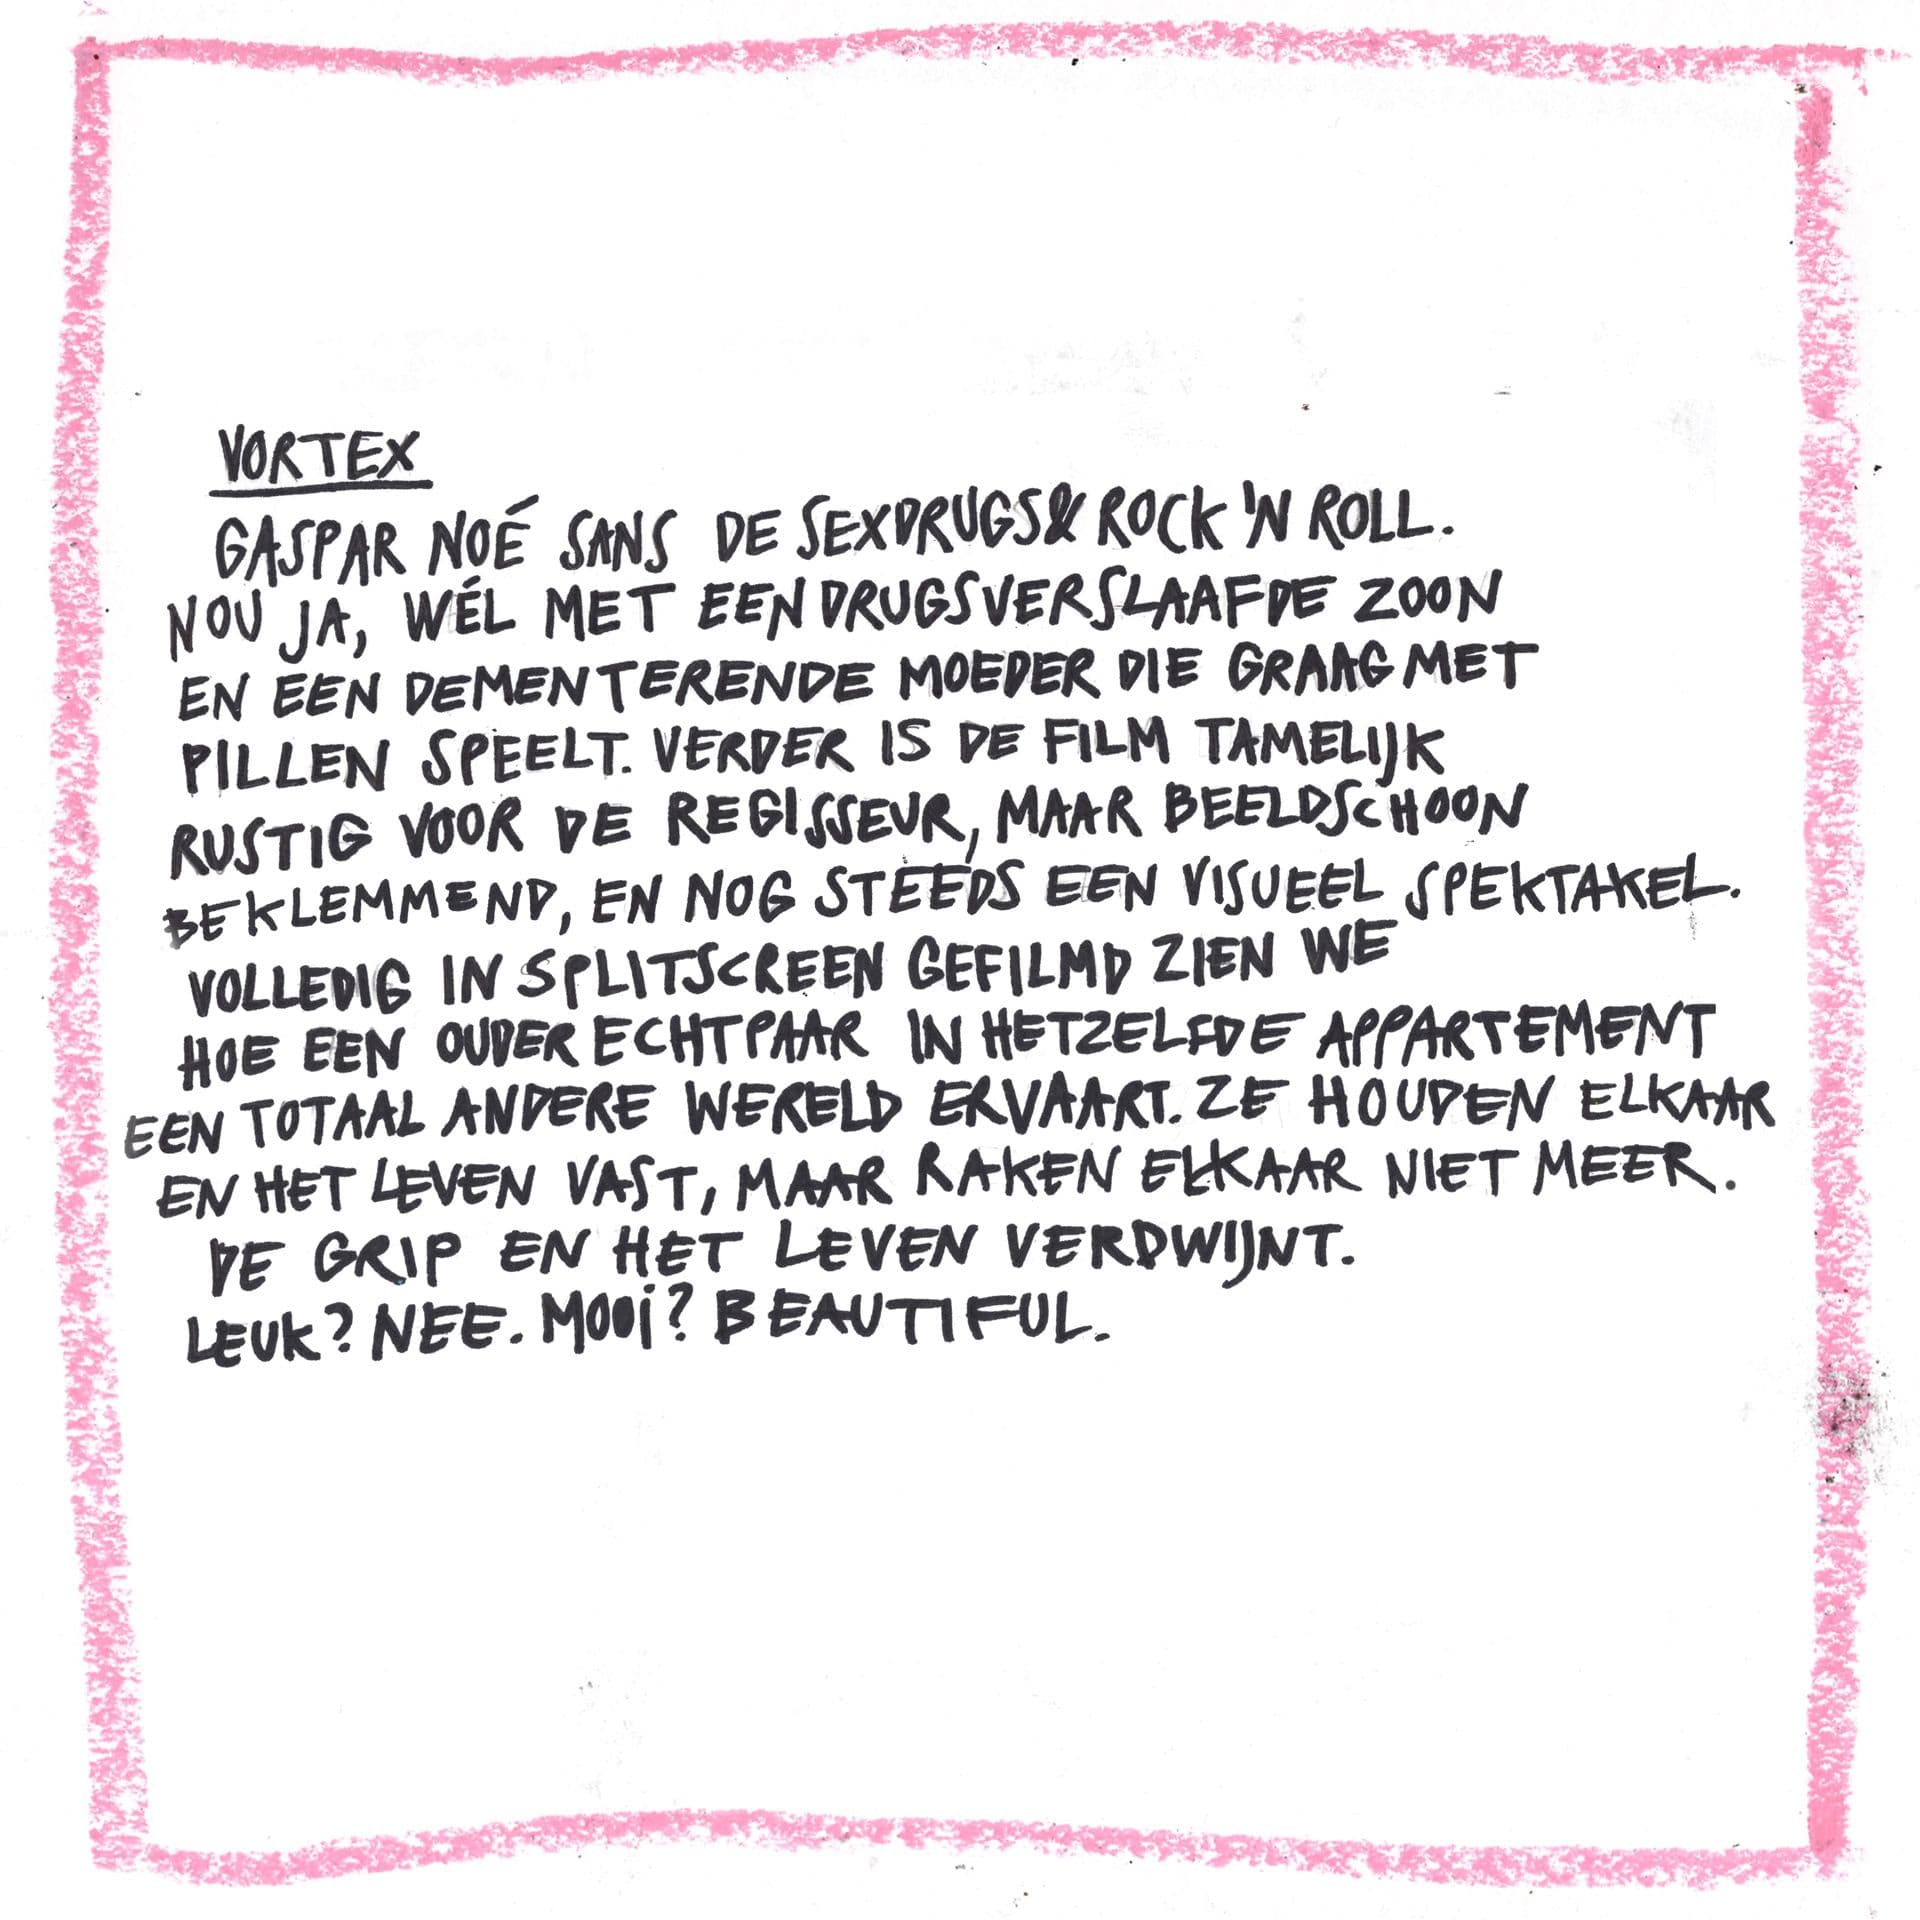 VORTEX
GASPAR NOÉ SANS DE SEXDRUGS & ROCK 'N ROLL.
NOU JA, WÉL MET EEN DRUGSVERSLAAFDE ZOON
EN EEN DEMENTERENDE MOEDER DIE GRAAG MET
PILLEN SPEELT. VERDER IS DE FILM TAMELIJK
RUSTIG VOOR DE REGISSEUR, MAAR BEELDSCHOON
BEKLEMMEND, EN NOG STEEDS EEN VISUEEL SPEKTAKEL.
VOLLEDIG IN SPLITSCREEN GEFILMD ZIEN WE
HOE EEN OUDER ECHTPAAR IN HETZELFDE APPARTEMENT
EEN TOTAAL ANDERE WERELD ERVAART. ZE HOUDEN ELKAAR
EN HET LEVEN VAST, MAAR RAKEN ELKAAR NIET MEER.
DE GRIP EN HET LEVEN VERDWIJNT.
LEUK? NEE. MOOI? BEAUTIFUL.